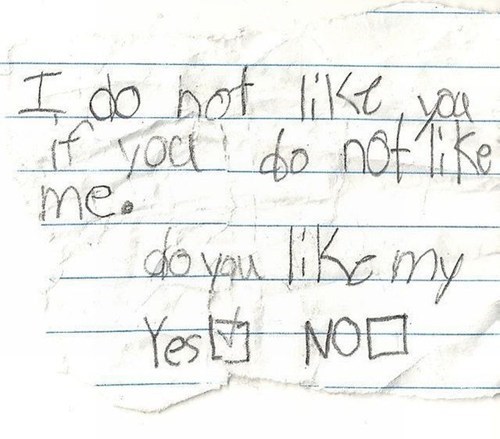 I do not like you
if you do not like
me.
do you like my
Yes NO